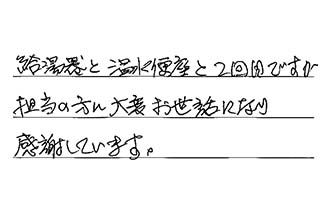 給湯器と温水便座と2回目ですが
担当の方に大変お世話になり
感謝しています。